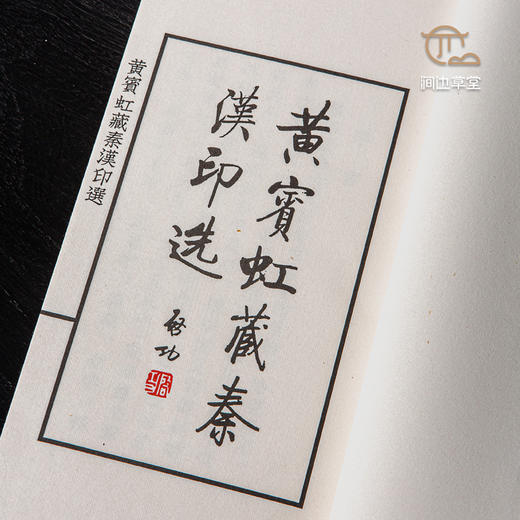 黄賓虹藏秦
漢印选
啓功
黃賓虹藏秦漢印選
草堂